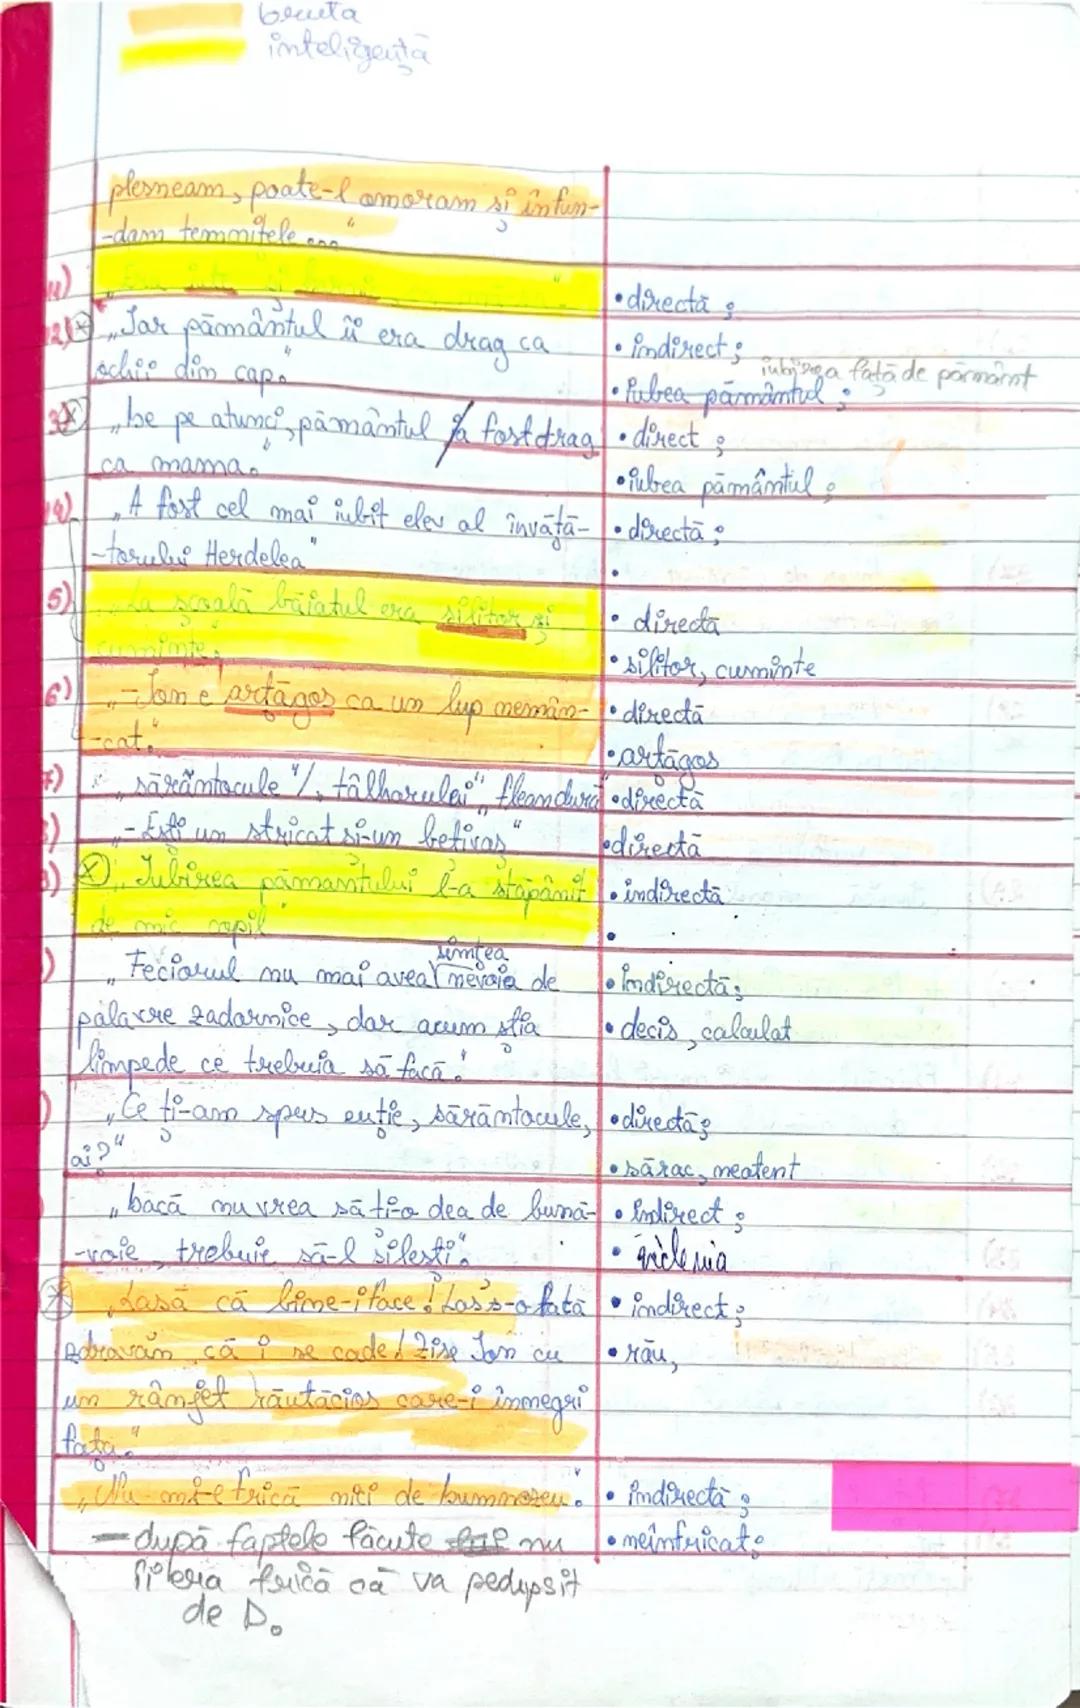 bruta
inteligență
plesneam, poate-l omoram și înfun-
-dam temnițele ..."
"Era iute și harnic
• directă;
12) "Iar pământul îi era drag ca
ochii din cap."
• indirect;
iubirea față de pământ
• Iubea pământul;
"De pe atunci, pământul ia fost drag
ca mama."
• direct;
• iubea pământul;
14) "A fost cel mai iubit elev al învăță-
-torului Herdelea"
• directă;
5) "La școală băiatul era silitor și
cuminte.
• directă
• silitor, cuminte
6) "- Ion e arțăgos ca un lup nemân-
-cat."
• directă
• arțăgos
7) "sărăntocule"/"tâlharului", fleandură
• directă
"- Ești un stricat si-un betivas"
• directă
"Iubirea pământului l-a stăpânit
de mic copil"
• indirectă
simțea
"Feciorul nu mai avea nevoia de
palavre zadarnice, dar acum știa
limpede ce trebuia să facă."
• Indirectă;
• decis, calculat
"Ce ți-am spus euție, sărăntocule,
ai?"
• directă;
• sărac, neatent
"Dacă nu vrea să ți-o dea de bună-
-voie, trebuie să-l silești".
• Indirect;
• viclenia
"Lasă că bine-i face! Las's-o bată
zdravăn, că i se cade! Zise Ion cu
un rânjet răutăcios care-i înnegri
fața."
• indirect;
• rău,
"Nu mi-e frică nici de Dumnezeu."
• indirectă;
• neînfricat;
— după faptele făcute nu
îi era frică că va pedepsit
de D.